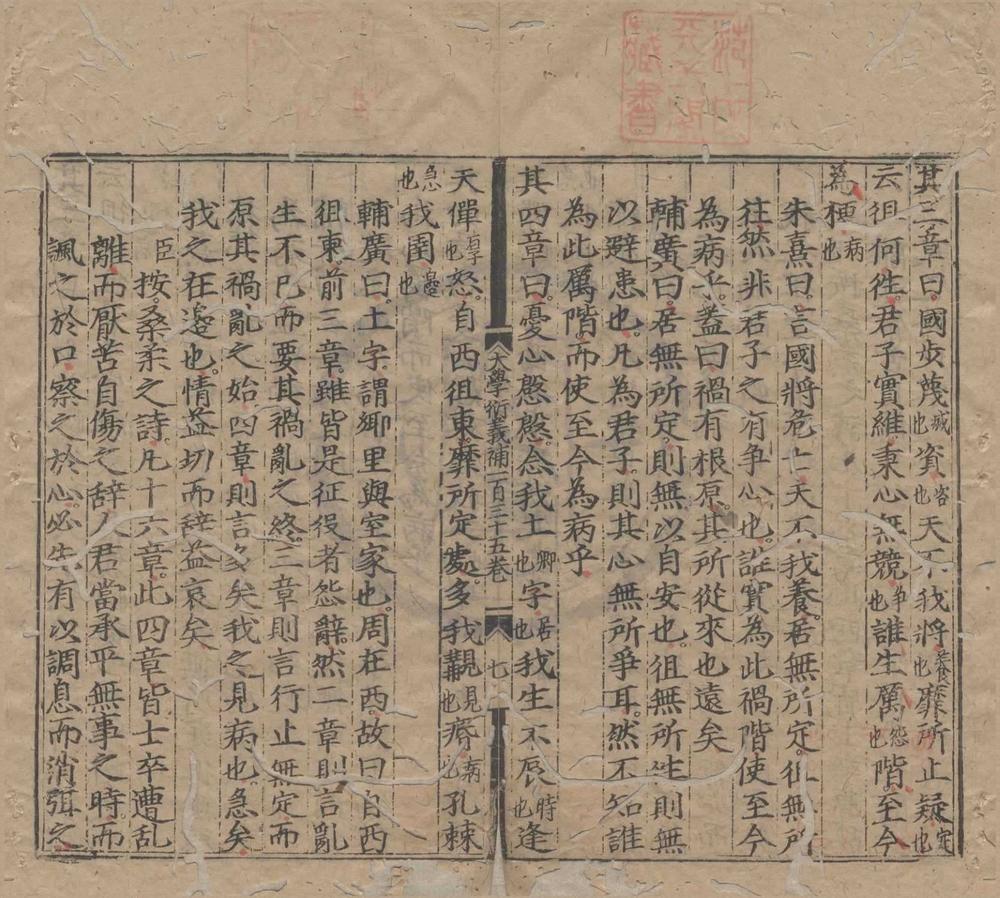 其三章曰國步蔑滅也資咨也天不我將養也靡所止疑定也
云徂何往君子實維秉心無競爭也誰生厲怨也階至今
為梗病也
朱熹曰言國將危亡天不我養居無所定徂無所
往然非君子之有爭心也誰實為此禍階使至今
為病乎蓋曰禍有根原其所從來也遠矣
輔廣曰居無所定則無以自安也徂無所往則無
以避患也凡為君子則其心無所爭耳然不知誰
為此厲階而使至今為病乎
其四章曰憂心慇慇念我土鄉也宇居也我生不辰時也逢
大學衍義補 一百三十五卷 七
天僤厚也怒自西徂東靡所定處多我覯見也瘠病也孔棘
急也我圉邊也
輔廣曰土宇謂鄉里與室家也周在西故曰自西
徂東前三章雖皆是征役者怨辭然二章則言亂
生不已而要其禍亂之終三章則言行止無定而
原其禍亂之始四章則言多矣我之見病也急矣
我之在邊也情益切而辭益哀矣
臣按桑柔之詩凡十六章此四章皆士卒遭乱
離而厭苦自傷之辞人君當承平無事之時而
諷之於口察之於心必先有以調息而消弭之